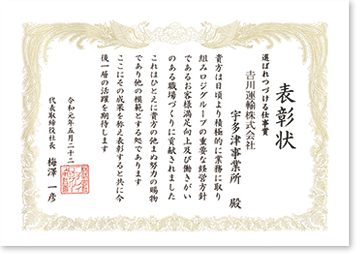 表彰状
選ばれつづける仕事賞
吉川運輸株式会社
宇多津事業所 殿
貴方は日頃より積極的に業務に取り
組みロジグループの重要な経営方針
であるお客様満足向上及び働きがい
のある職場づくりに貢献されました
これはひとえに貴方の他まぬ努力の賜物
であり他の模範とする処であります
ここにその成果を称え表彰すると共に今
後一層の活躍を期待します
令和元年五月二十二日
代表取締役社長 梅澤一彦